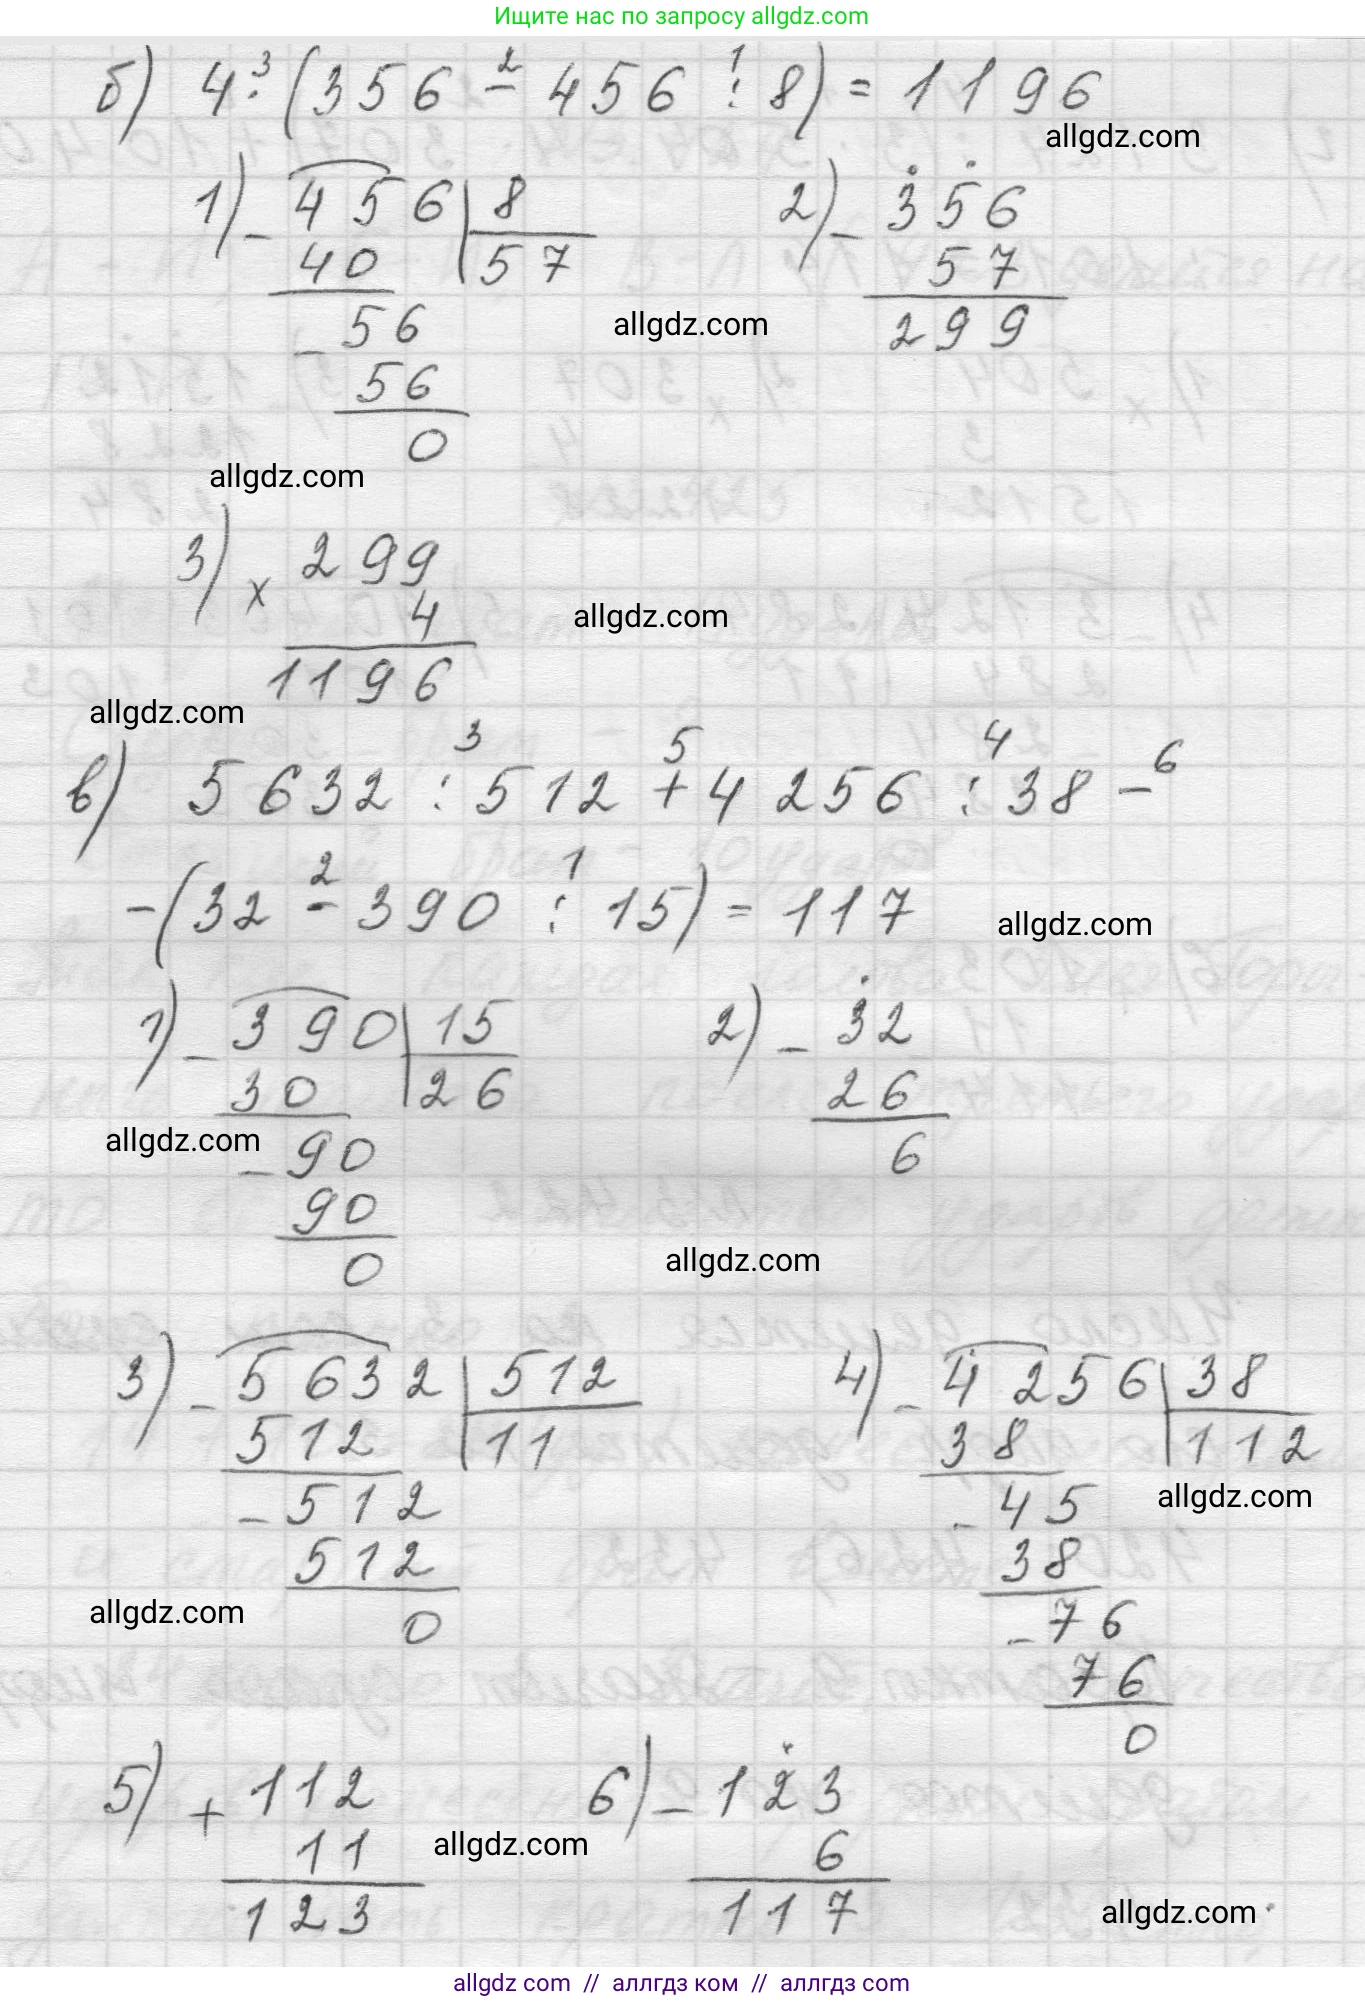 Ищите нас по запросу allgdz.com
б) 4 ·³ (356 -² 456 :¹ 8) = 1196
allgdz.com
1) - 456 | 8      2) - 356
40 | 57      57
56      299
allgdz.com
- 56
0
allgdz.com
3) × 299
4
allgdz.com
1196
allgdz.com
в) 5632 :³ 512 +⁵ 4256 :⁴ 38 -⁶
-(32 -² 390 :¹ 15) = 117
allgdz.com
1) - 390 | 15      2) - 32
30 | 26      26
allgdz.com
- 90      6
90
0
allgdz.com
3) - 5632 | 512      4) - 4256 | 38
512 | 11      38 | 112
- 512      - 45
allgdz.com
512      38
allgdz.com
0      - 76
76
0
5) + 112      6) - 123
11      6
allgdz.com
123      117
allgdz.com
allgdz com // аллгдз ком // аллгдз com